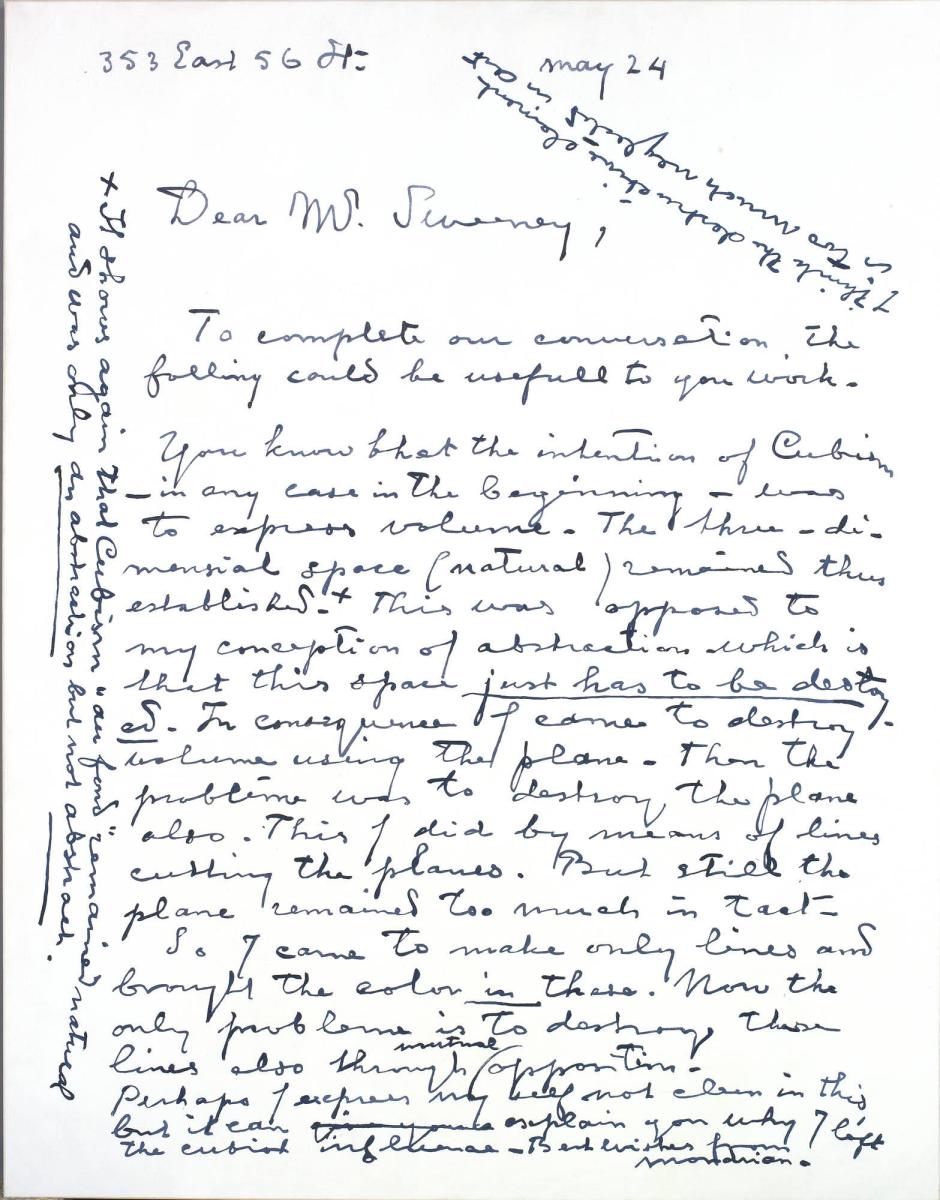 353 East 56 St:
may 24
Dear Mr. Sweeney,
To complete our conversation, the
folling could be usefull to you work.
You know that the intention of Cubism
– in any case in the beginning – was
to express volume. The three-di-
mensial space (natural) remained thus
established.+ This was opposed to
my conception of abstraction which is
that this space just has to be destoy-
ed. In consequence I came to destroy
volume using the plane. Then the
problème was to destroy the plane
also. This I did by means of lines
cutting the planes. But still the
plane remained too much in tact.
So I came to make only lines and
brought the color in these. Now the
only problème is to destroy these
lines also through mutual opposition.
Perhaps I express my self not clear in this
but it can explain you why I left
the cubist influence. Best wishes from
Mondrian.
+ It shows again that Cubism "au fond" remained natural
and was only an abstraction but not abstract.
I think the destructive element
is too much neglected in art